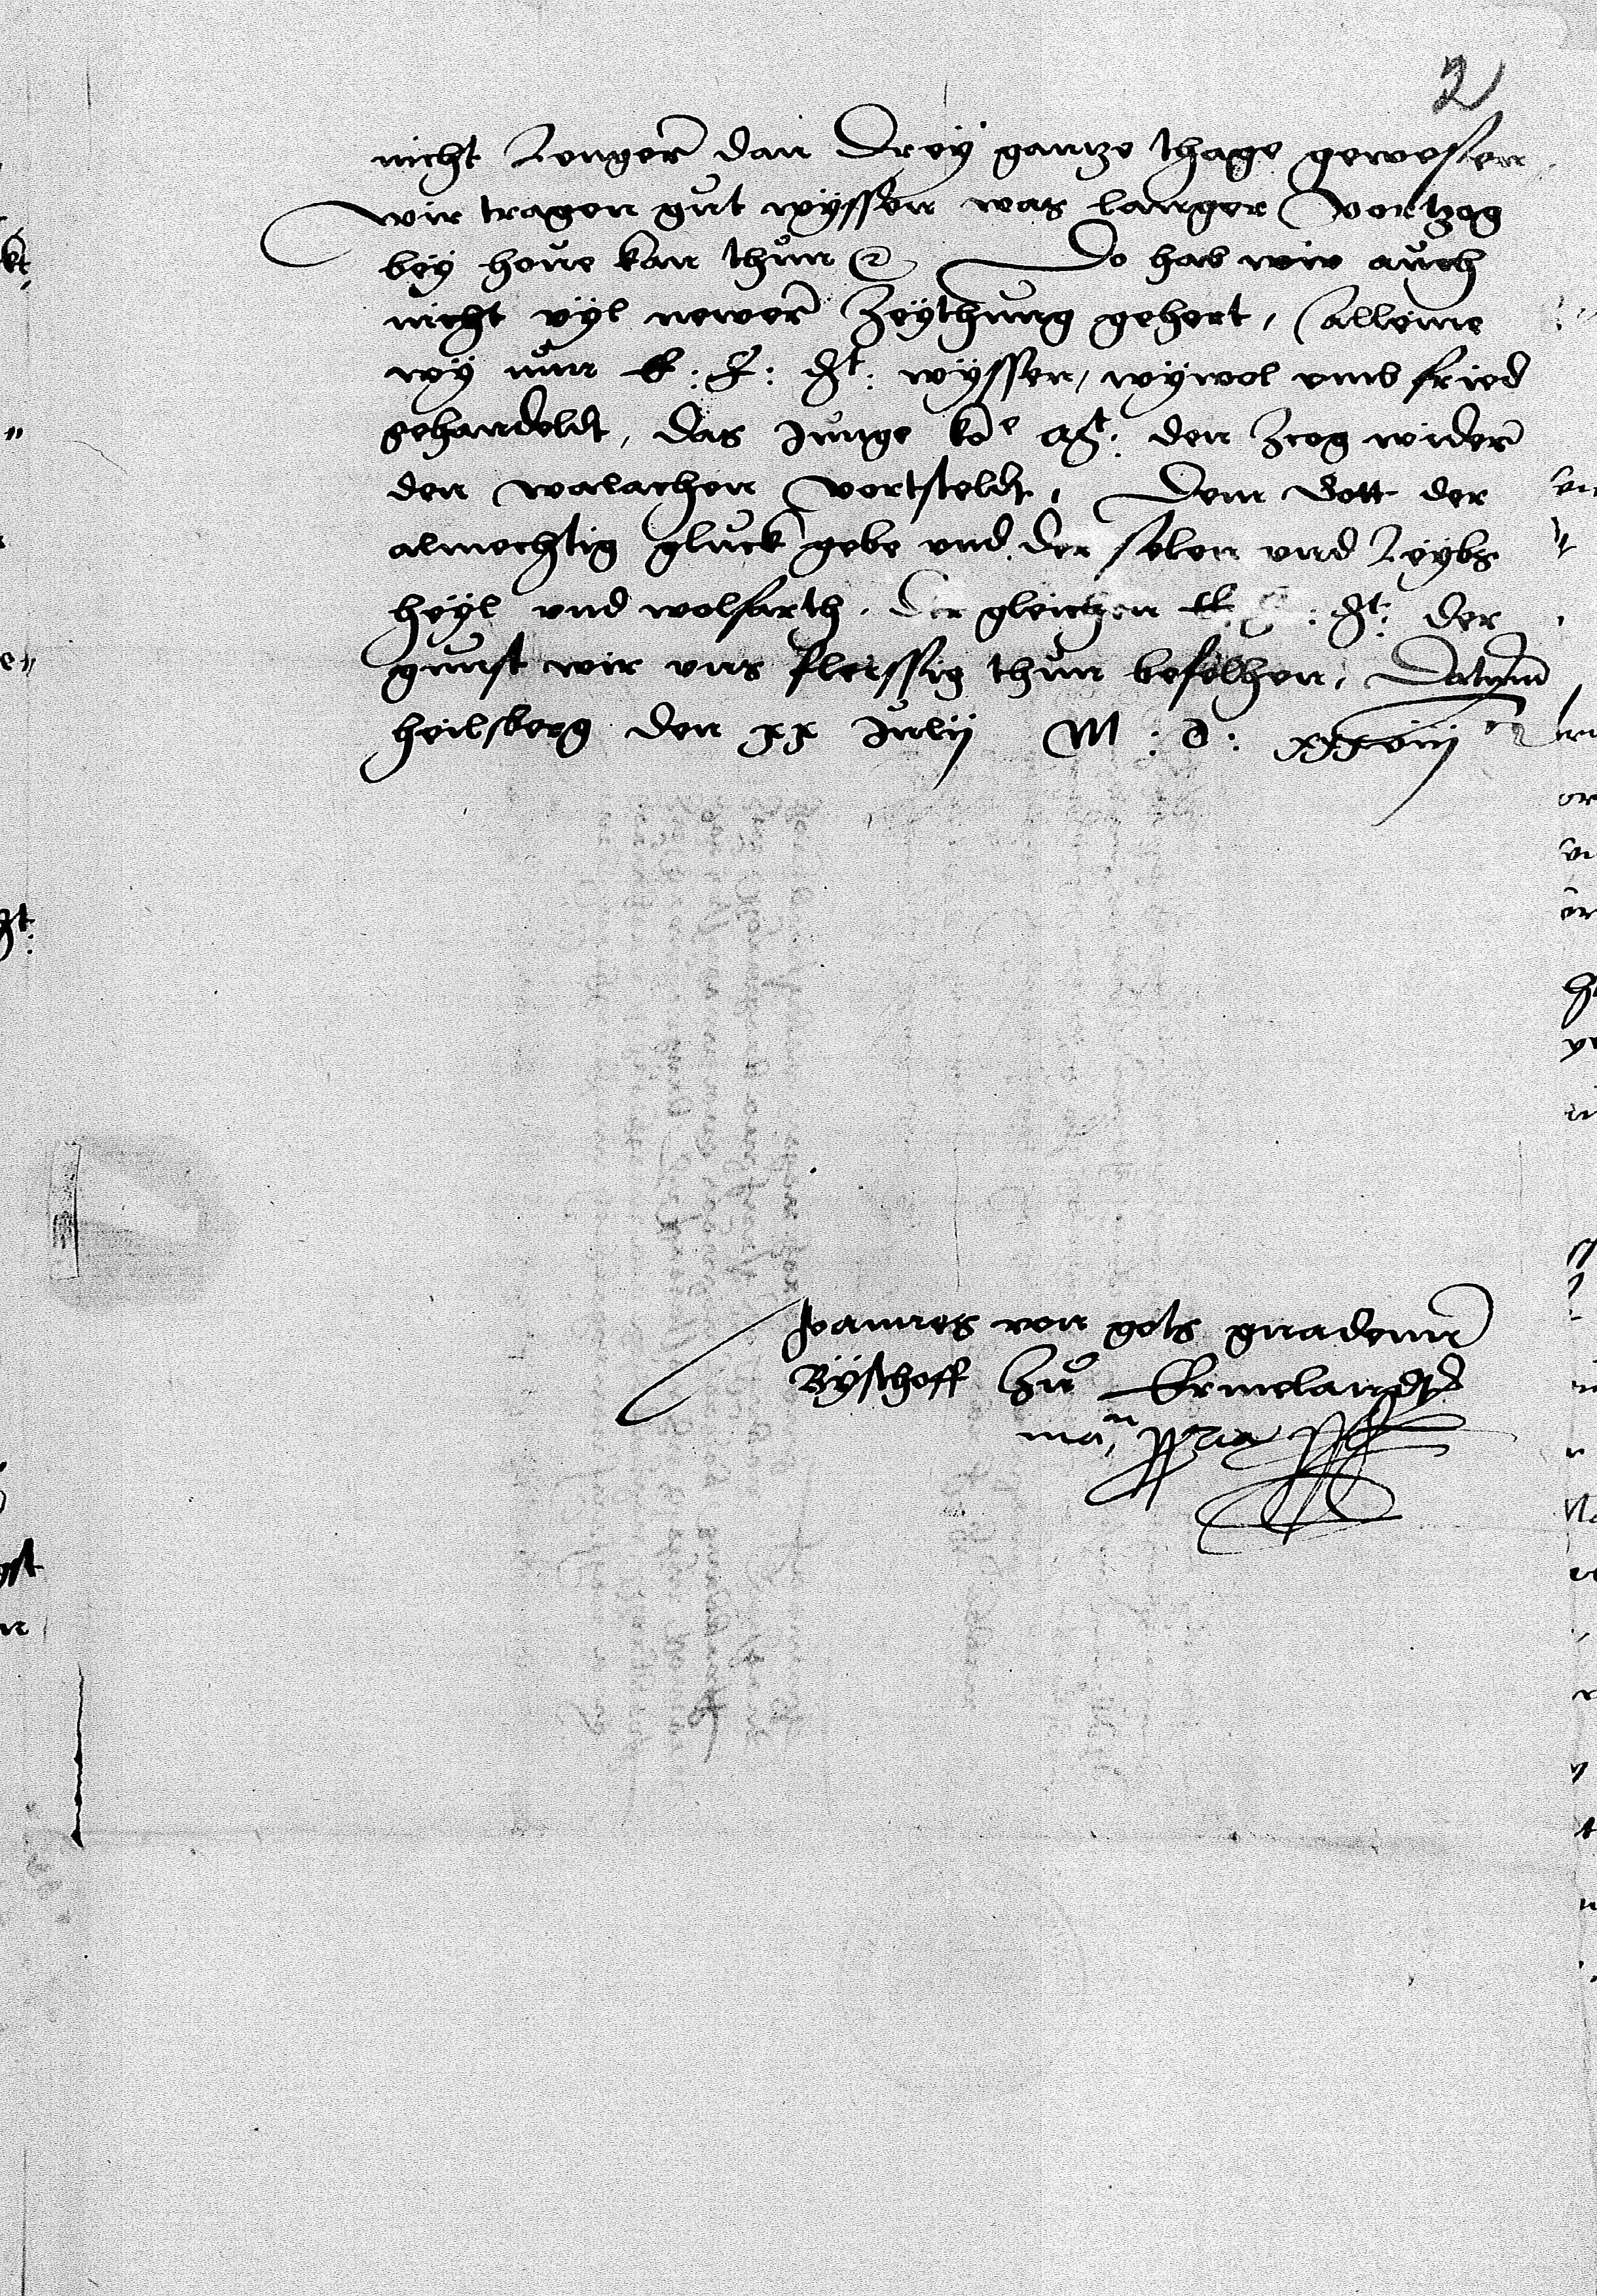 2
nicht lenger dan drey gantze thage gewesen
wir tragen gut wyssen was langer vortzog
bey houe kan thun etc. Do hab wir auch
nicht vyl newer zeythung gehort, alleine
wy nun E: F: Gt: wyssen, wywol vmb fried
gehandeldt, das Junge ko{e} Mt: den zcog wider
den walachen vortsteldt, Dem Gott der
almechtig gluck gebe vnd der selen vnd leybs
heyl vnd wolfarth. Der gleichen E. F: Gt: der
gunst wir vns fleissig thun befelhen, Datum
heilsberg den xx Julij M: D: xxxviij
Joannes von gots gnadenn
Byschoff zu Ermelandt
man ppria sst